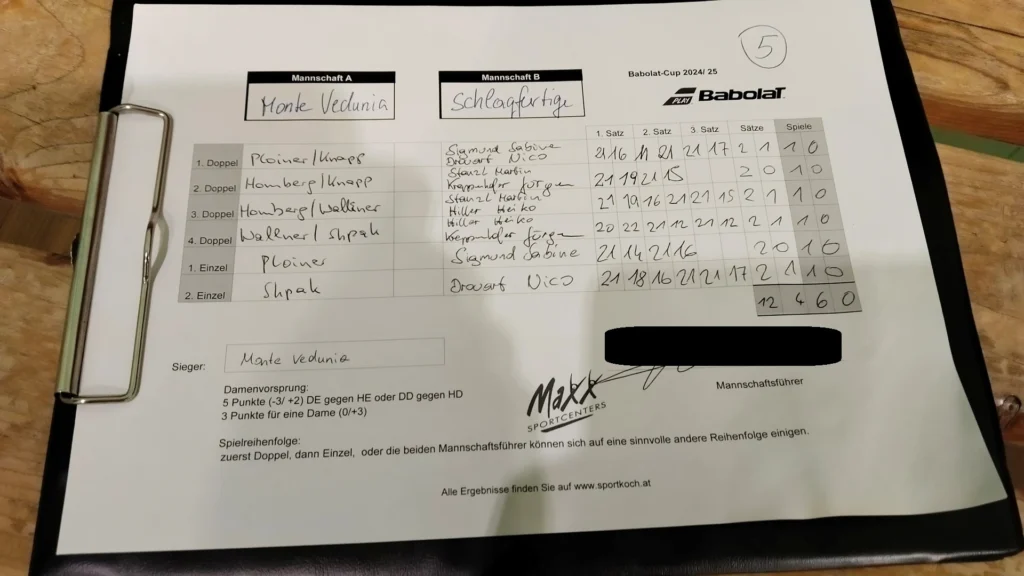 5
Mannschaft A Mannschaft B Babolat-Cup 2024/ 25
Monte Vedunia Schlagfertige PLAY BabolaT
1. Satz 2. Satz 3. Satz Sätze Spiele
1. Doppel Ploiner/Knapp Sigmund Sabine Nico 21 16 11 21 21 17 2 1 1 0
2. Doppel Homberg/Knapp Stanzl Martin Jürgen 21 19 21 15 2 0 1 0
3. Doppel Homberg/Wallner Stanzl Martin Hiller Heiko 21 19 16 21 21 15 2 1 1 0
4. Doppel Wallner/Shpak Hiller Heiko Jürgen 20 22 21 12 21 12 2 1 1 0
1. Einzel Ploiner Sigmund Sabine 21 14 21 16 2 0 1 0
2. Einzel Shpak Nico 21 18 16 21 21 17 2 1 1 0
12 4 6 0
Sieger: Monte Vedunia
Mannschaftsführer
Damenvorsprung:
5 Punkte (-3/ +2) DE gegen HE oder DD gegen HD
3 Punkte für eine Dame (0/+3)
Maxx
SPORTCENTERS
Spielreihenfolge:
zuerst Doppel, dann Einzel, oder die beiden Mannschaftsführer können sich auf eine sinnvolle andere Reihenfolge einigen.
Alle Ergebnisse finden Sie auf www.sportkoch.at